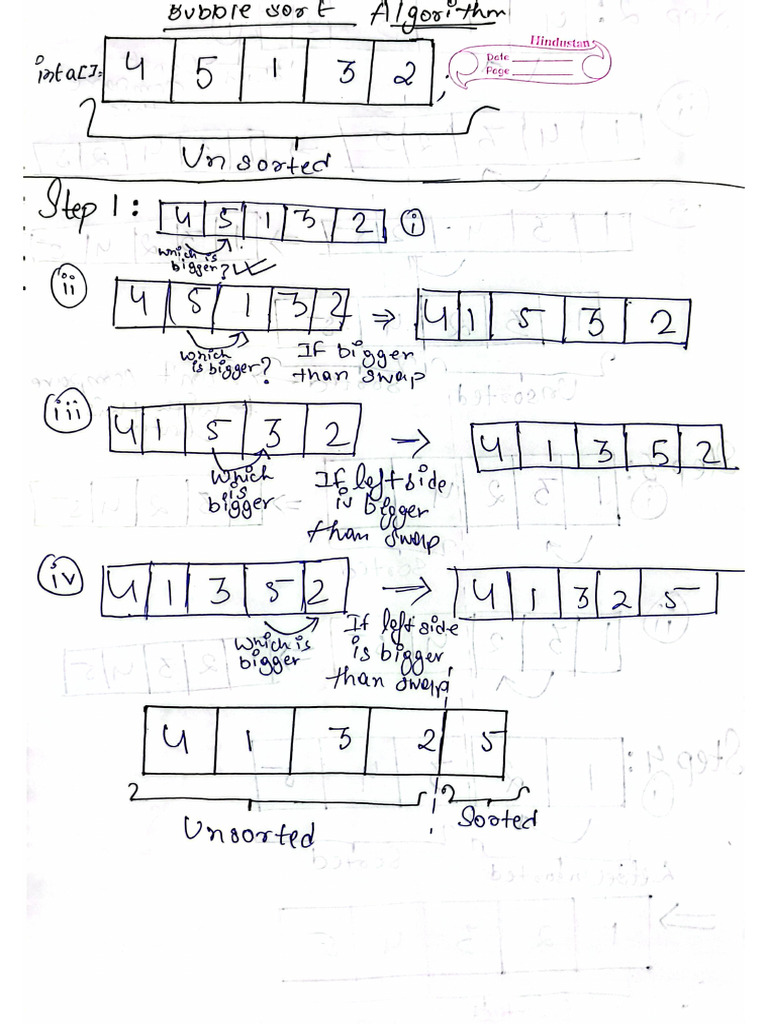 Bubble sort Algorithm
int a[]= 4 5 1 3 2 ;
Hindustan
Date
Page
Unsorted
Step 1: 4 5 1 3 2 i
which is
bigger?
ii 4 5 1 3 2 ⇒ 4 1 5 3 2
which
is bigger?
If bigger
than swap
iii 4 1 5 3 2 → 4 1 3 5 2
which
is
bigger
If left side
is bigger
than swap
iv 4 1 3 5 2 → 4 1 3 2 5
which is
bigger
If left side
is bigger
than swap
4 1 3 2 5
Unsorted Sorted